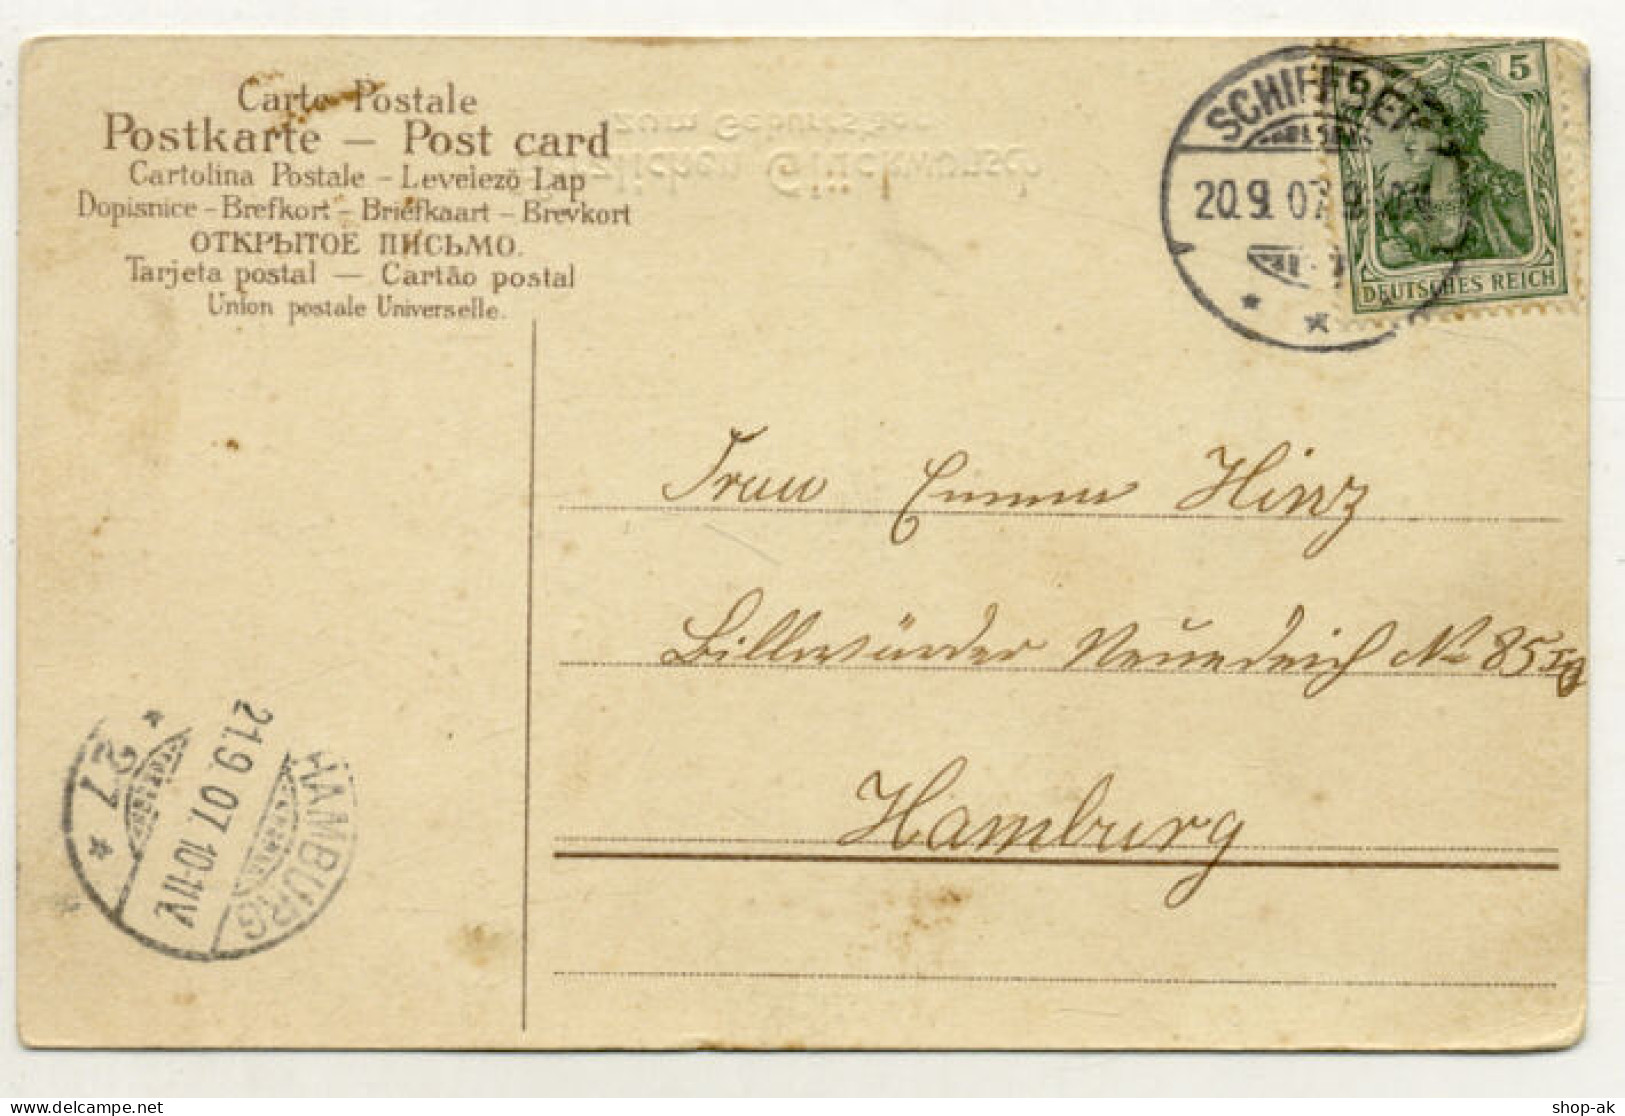 Carte Postale
Postkarte – Post card
Cartolina Postale – Levelezö-Lap
Dopisnice – Brefkort – Briefkaart – Brevkort
ОТКРЫТОЕ ПИСЬМО.
Tarjeta postal — Cartão postal
Union postale Universelle.
zum Geburtstage
Glückwunsch
SCHIFFBEK
20.9.07.
5
DEUTSCHES REICH
Frau Emma Hinz
Billwärder Neuedeich No 85
Hamburg
HAMBURG
21.9.07. 10-11V.
* 27 *
shop-ak